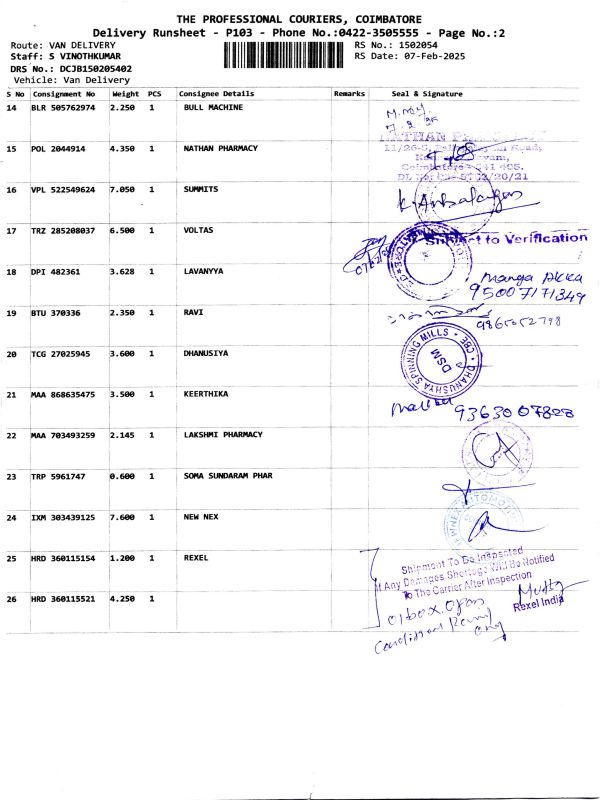 THE PROFESSIONAL COURIERS, COIMBATORE
Delivery Runsheet - P103 - Phone No.:0422-3505555 - Page No.:2
Route: VAN DELIVERY RS No.: 1502054
Staff: S VINOTHKUMAR RS Date: 07-Feb-2025
DRS No.: DCJB150205402
Vehicle: Van Delivery
S No Consignment No Weight PCS Consignee Details Remarks Seal & Signature
14 BLR 505762974 2.250 1 BULL MACHINE
15 POL 2044914 4.350 1 NATHAN PHARMACY
NATHAN
11/26-5,
Coimbatore
16 VPL 522549624 7.050 1 SUMMITS
17 TRZ 285208037 6.500 1 VOLTAS
Subject to Verification
18 DPI 482361 3.628 1 LAVANYYA
Manga Akka
95007171349
19 BTU 370336 2.350 1 RAVI
9865052798
20 TCG 27025945 3.600 1 DHANUSIYA
DHANUSHYA SPINNING MILLS * CBE *
DSM
21 MAA 868635475 3.500 1 KEERTHIKA
9363007828
22 MAA 703493259 2.145 1 LAKSHMI PHARMACY
23 TRP 5961747 0.600 1 SOMA SUNDARAM PHAR
24 IXM 303439125 7.600 1 NEW NEX
25 HRD 360115154 1.200 1 REXEL
Shipment To Be Inspected
If Any Damages Shortage Will Be Notified
To The Carrier After Inspection
26 HRD 360115521 4.250 1
Rexel India